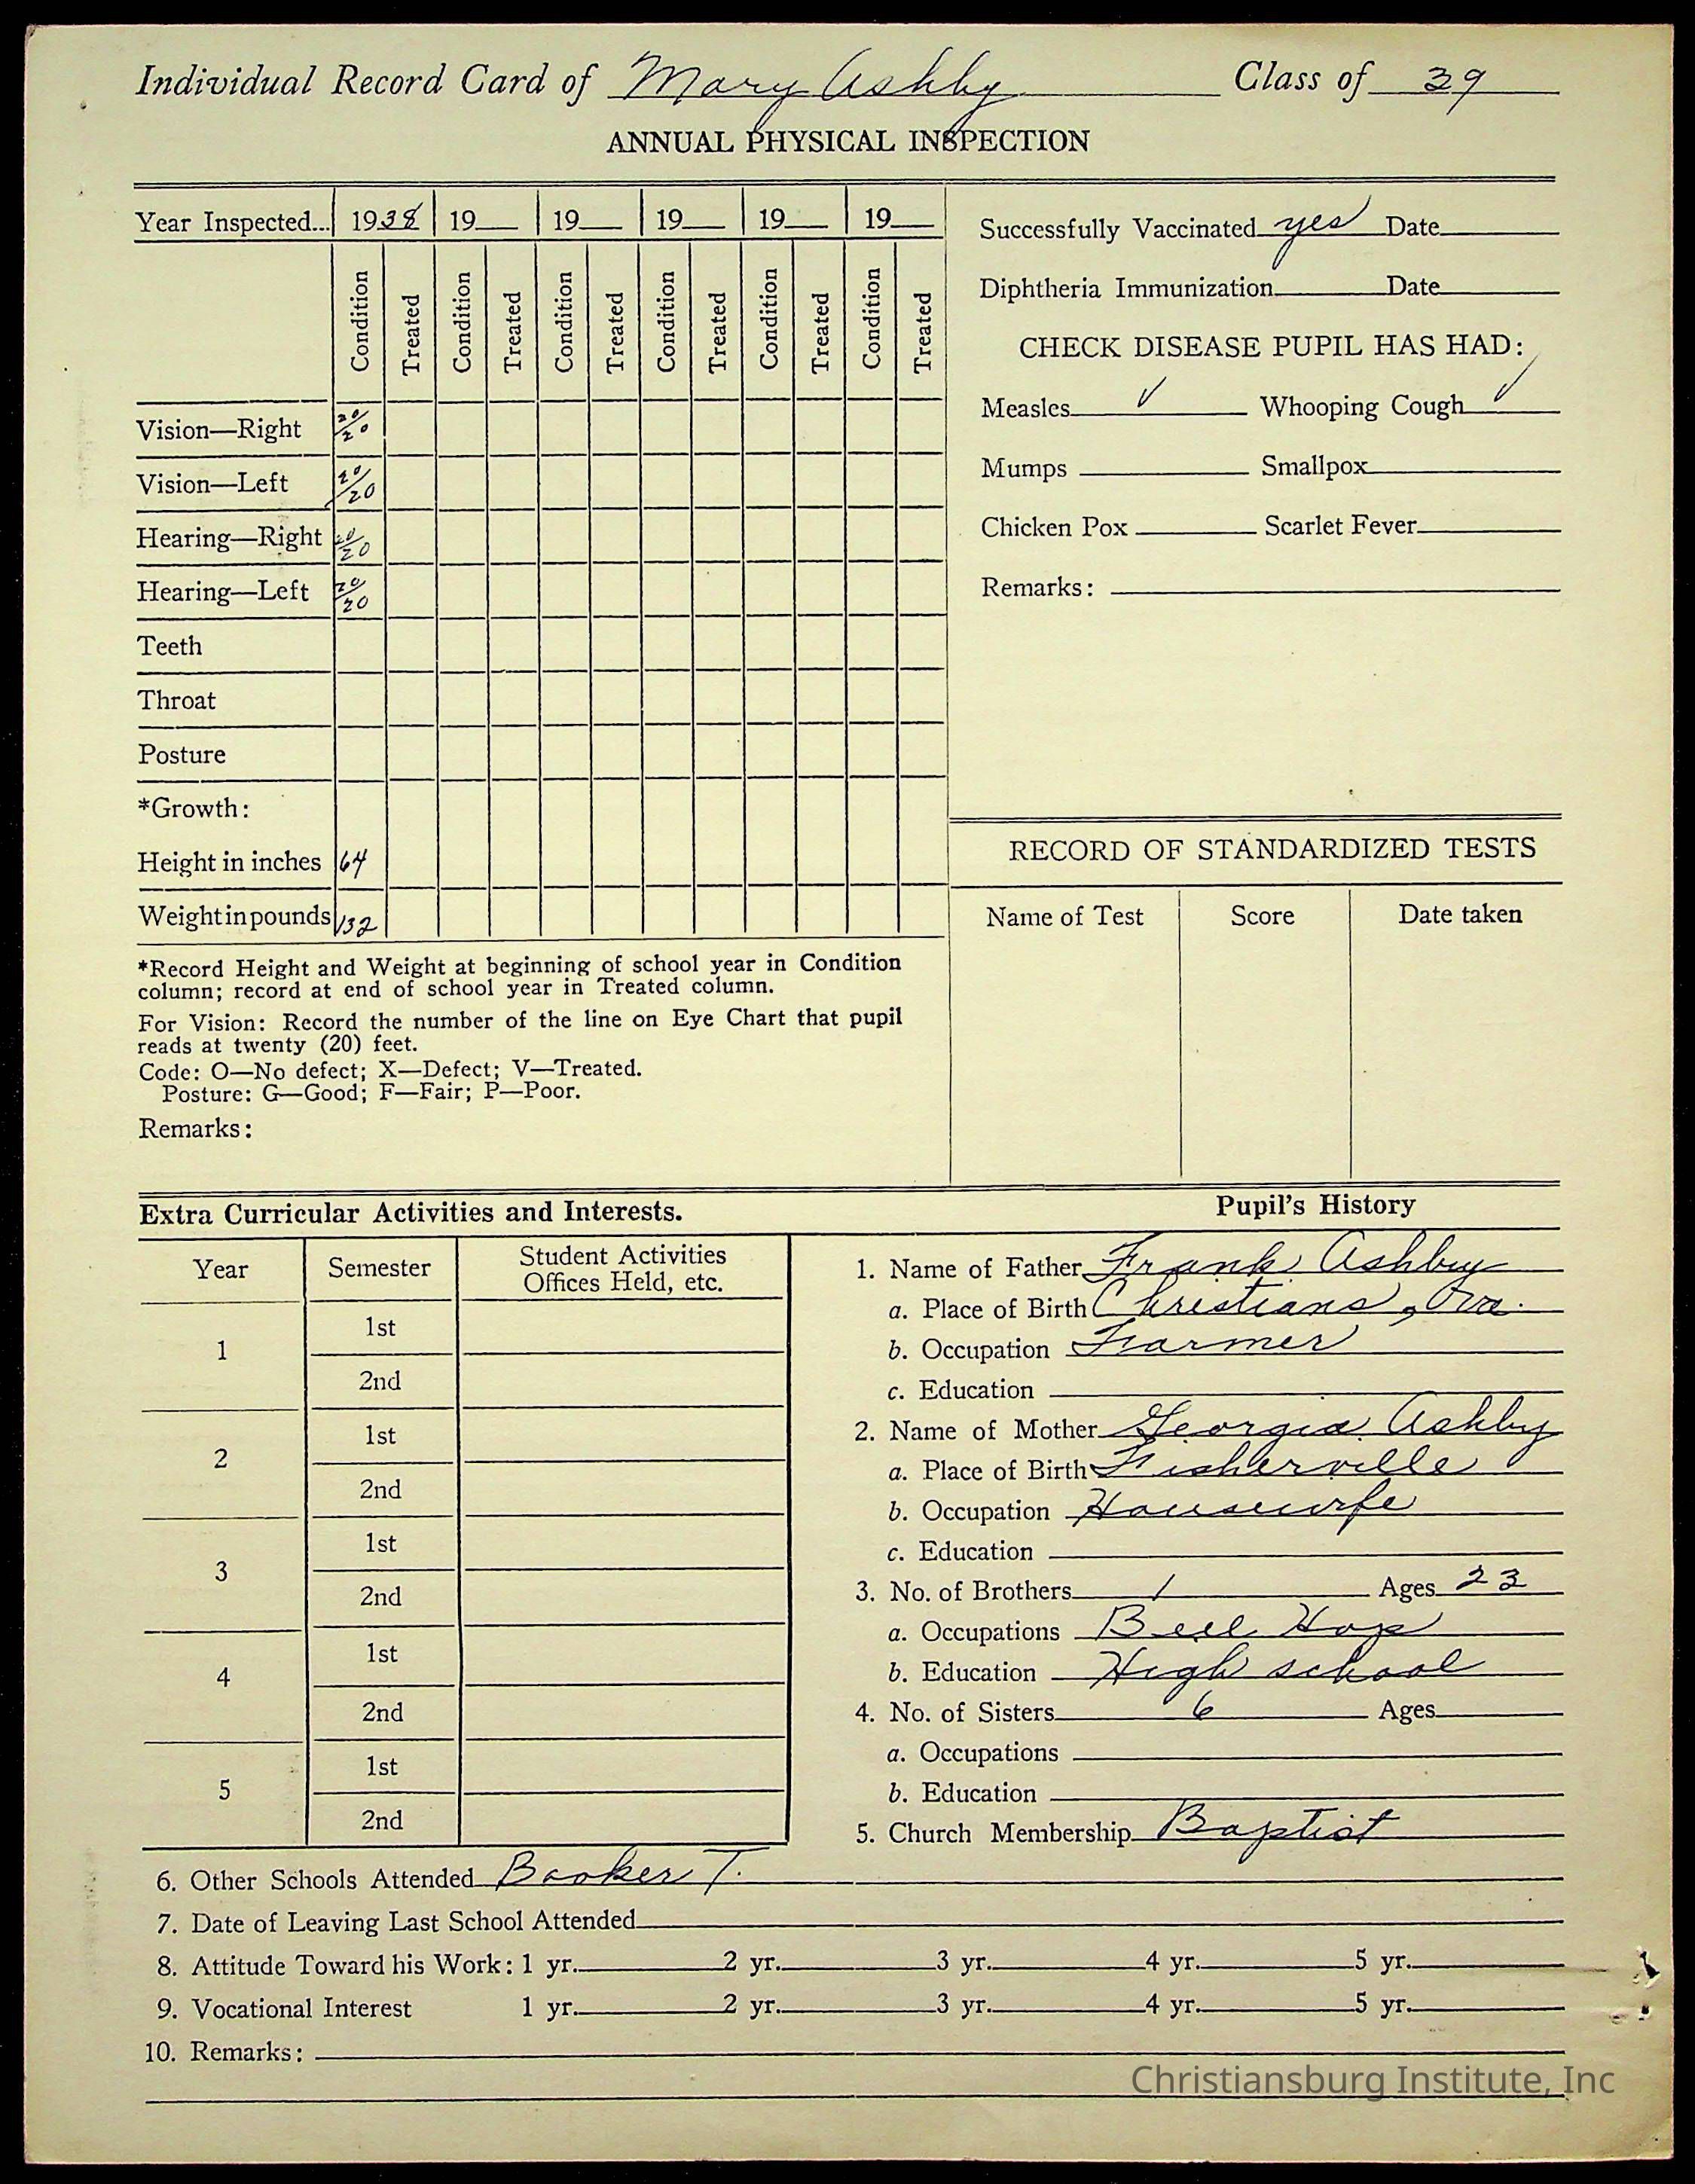 Individual Record Card of Mary Ashby Class of 39
ANNUAL PHYSICAL INSPECTION
Year Inspected... 1938 19__ 19__ 19__ 19__ 19__
Condition Treated Condition Treated Condition Treated Condition Treated Condition Treated Condition Treated
Vision—Right 20/20
Vision—Left 20/20
Hearing—Right 20/20
Hearing—Left 20/20
Teeth
Throat
Posture
*Growth:
Height in inches 64
Weight in pounds 132
*Record Height and Weight at beginning of school year in Condition
column; record at end of school year in Treated column.
For Vision: Record the number of the line on Eye Chart that pupil
reads at twenty (20) feet.
Code: O—No defect; X—Defect; V—Treated.
Posture: G—Good; F—Fair; P—Poor.
Remarks:
Successfully Vaccinated yes Date
Diphtheria Immunization Date
CHECK DISEASE PUPIL HAS HAD:
Measles ✓ Whooping Cough ✓
Mumps Smallpox
Chicken Pox Scarlet Fever
Remarks:
RECORD OF STANDARDIZED TESTS
Name of Test Score Date taken
Extra Curricular Activities and Interests.
Year Semester Student Activities
Offices Held, etc.
1 1st
2nd
2 1st
2nd
3 1st
2nd
4 1st
2nd
5 1st
2nd
Pupil's History
1. Name of Father Frank Ashby
a. Place of Birth Christians, Va.
b. Occupation Farmer
c. Education
2. Name of Mother Georgia Ashby
a. Place of Birth Fisherville
b. Occupation Housewife
c. Education
3. No. of Brothers 1 Ages 23
a. Occupations Bell Hop
b. Education High school
4. No. of Sisters 6 Ages
a. Occupations
b. Education
5. Church Membership Baptist
6. Other Schools Attended Booker T.
7. Date of Leaving Last School Attended
8. Attitude Toward his Work: 1 yr. 2 yr. 3 yr. 4 yr. 5 yr.
9. Vocational Interest 1 yr. 2 yr. 3 yr. 4 yr. 5 yr.
10. Remarks:
Christiansburg Institute, Inc